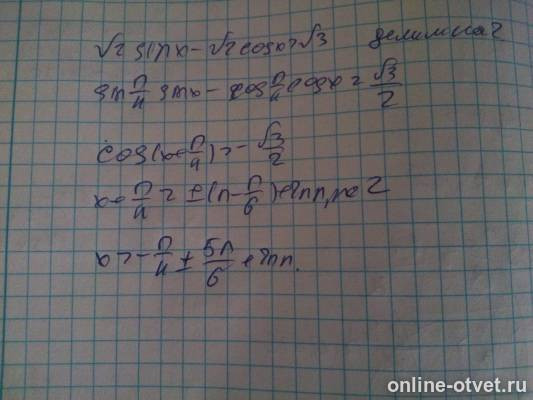 √2 sinx - √2 cosx = √3 делим на 2
sin π/4 sinx - cos π/4 cosx = √3/2
cos(x + π/4) = - √3/2
x + π/4 = ± (π - π/6) + 2πn, n∈Z
x = - π/4 ± 5π/6 + 2πn.
online-otvet.ru